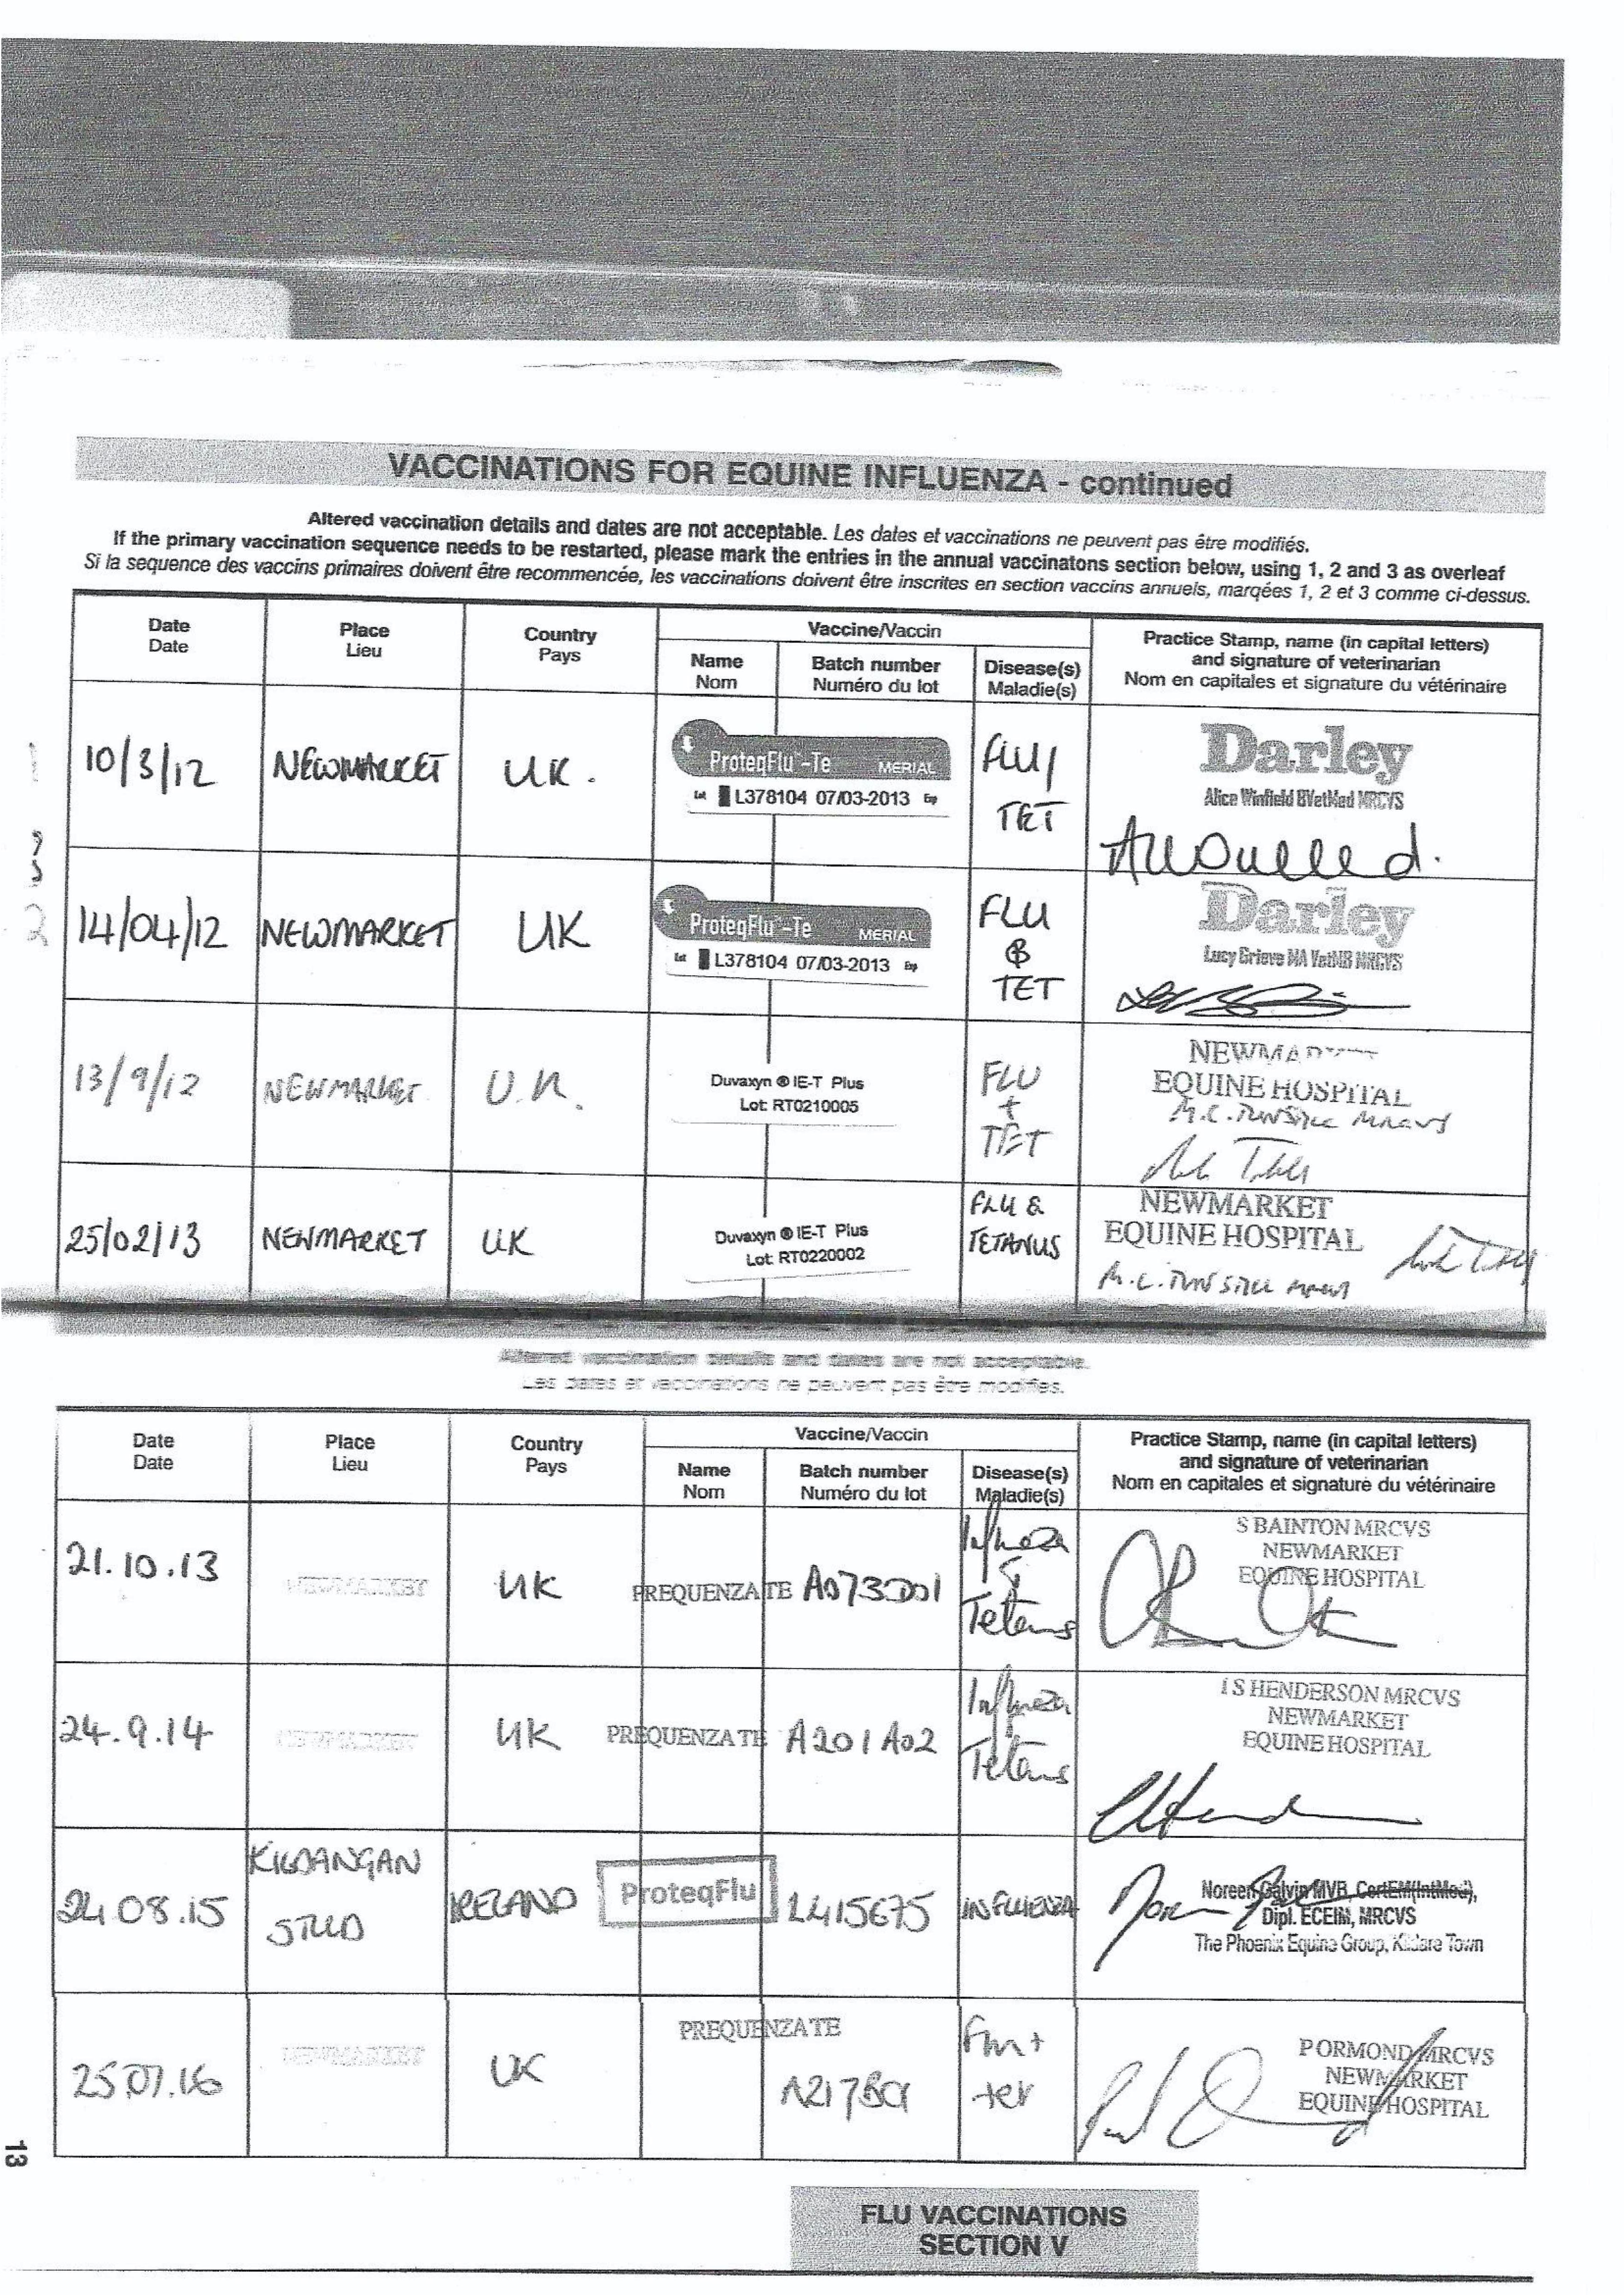 VACCINATIONS FOR EQUINE INFLUENZA - continued
Altered vaccination details and dates are not acceptable. Les dates et vaccinations ne peuvent pas être modifiés.
If the primary vaccination sequence needs to be restarted, please mark the entries in the annual vaccinatons section below, using 1, 2 and 3 as overleaf
Si la sequence des vaccins primaires doivent être recommencée, les vaccinations doivent être inscrites en section vaccins annuels, marqées 1, 2 et 3 comme ci-dessus.
Date
Date
Place
Lieu
Country
Pays
Vaccine/Vaccin
Name
Nom
Batch number
Numéro du lot
Disease(s)
Maladie(s)
Practice Stamp, name (in capital letters)
and signature of veterinarian
Nom en capitales et signature du vétérinaire
1
10/3/12
NEWMARKET
UK.
ProteqFlu-Te MERIAL
Lot L378104 07/03-2013 Exp
FLU/
TET
Darley
Alice Winfield BVetMed MRCVS
2
14/04/12
NEWMARKET
UK
ProteqFlu-Te MERIAL
Lot L378104 07/03-2013 Exp
FLU
&
TET
Darley
Lucy Grieve MA VetMB MRCVS
13/9/12
NEWMARKET
U.K.
Duvaxyn ® IE-T Plus
Lot: RT0210005
FLU
+
TET
NEWMARKET
EQUINE HOSPITAL
25/02/13
NEWMARKET
UK
Duvaxyn ® IE-T Plus
Lot: RT0220002
FLU &
TETANUS
NEWMARKET
EQUINE HOSPITAL
Altered vaccination details and dates are not acceptable.
Les dates et vaccinations ne peuvent pas être modifiés.
Date
Date
Place
Lieu
Country
Pays
Vaccine/Vaccin
Name
Nom
Batch number
Numéro du lot
Disease(s)
Maladie(s)
Practice Stamp, name (in capital letters)
and signature of veterinarian
Nom en capitales et signature du vétérinaire
21.10.13
NEWMARKET
UK
PREQUENZA TE
A073D01
Influenza
&
Tetanus
S BAINTON MRCVS
NEWMARKET
EQUINE HOSPITAL
24.9.14
NEWMARKET
UK
PREQUENZA TE
A201A02
Influenza
Tetanus
I S HENDERSON MRCVS
NEWMARKET
EQUINE HOSPITAL
24.08.15
KILDANGAN
STUD
IRELAND
ProteqFlu
L415675
INFLUENZA
Noreen Galvin MVB, CertEM(IntMed),
Dipl. ECEIM, MRCVS
The Phoenix Equine Group, Kildare Town
25.07.16
NEWMARKET
UK
PREQUENZA TE
P ORMOND MRCVS
NEWMARKET
EQUINE HOSPITAL
13
FLU VACCINATIONS
SECTION V